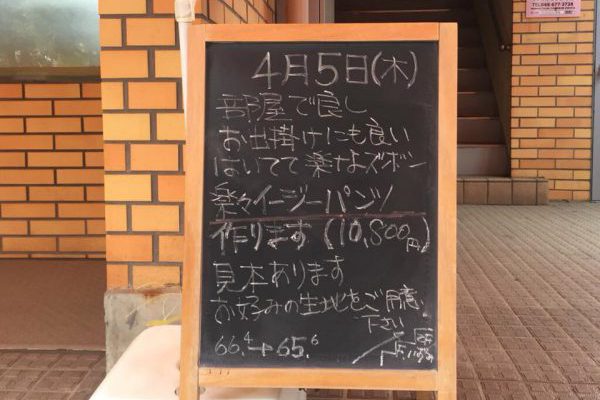 4月5日(木)
部屋で良し
お出掛けにも良い
はいてて楽なズボン
楽々イージーパンツ
作ります(10,800円)
見本あります
お好みの生地をご用意
下さい
66.4→65.6